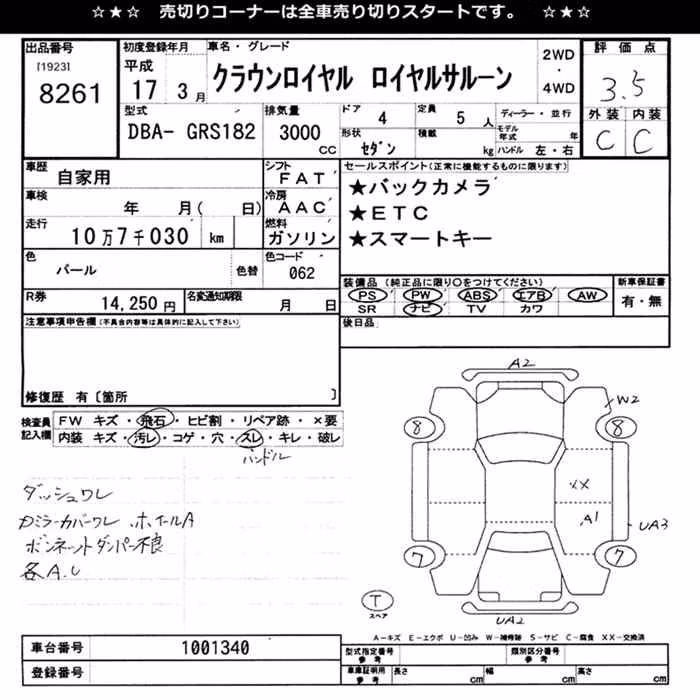 ☆★☆ 売切りコーナーは全車売り切りスタートです。 ☆★☆
出品番号 初度登録年月 車名・グレード 評価点
[1923] 平成 クラウンロイヤル ロイヤルサルーン 2WD・4WD 3.5
8261 17 3月
外装 内装
型式 排気量 ドア 4 定員 5人 ディーラー・並行 C C
DBA- GRS182 3000cc 形状 セダン 積載 kg モデル年式 年 ハンドル 左・右
車歴 自家用 シフト FAT セールスポイント(正常に機能するものに限ります)
車検 年 月( 日) 冷房 AAC ★バックカメラ
走行 10万7千030 km 燃料 ガソリン ★ETC
★スマートキー
色 パール 色替 色コード 062
装備品(純正品に限り○をつけてください) 新車保証書
R券 14,250円 名変通知期限 月 日 PS PW ABS エアB AW 有・無
SR ナビ TV カワ
注意事項申告欄(不具合内容等は具体的に記入して下さい) 後日品
修復歴 有〔箇所 〕
検査員記入欄 FW キズ・飛石・ヒビ割・リペア跡・×要
内装 キズ・汚レ・コゲ・穴・スレ・キレ・破レ
ハンドル
ダッシュワレ
カミラーカバーワレ ホイールA
ボンネットダンパー不良
各A.U
A2
W2
8 8
XX
A1
UA3
7 7
T
スペア
UA2
A-キズ E-エクボ U-凹み W-補修跡 S-サビ C-腐食 XX-交換済
車台番号 1001340 型式指定番号 参考 類別区分番号 参考
登録番号 車庫証明用 参考 長さ cm 幅 cm 高さ cm